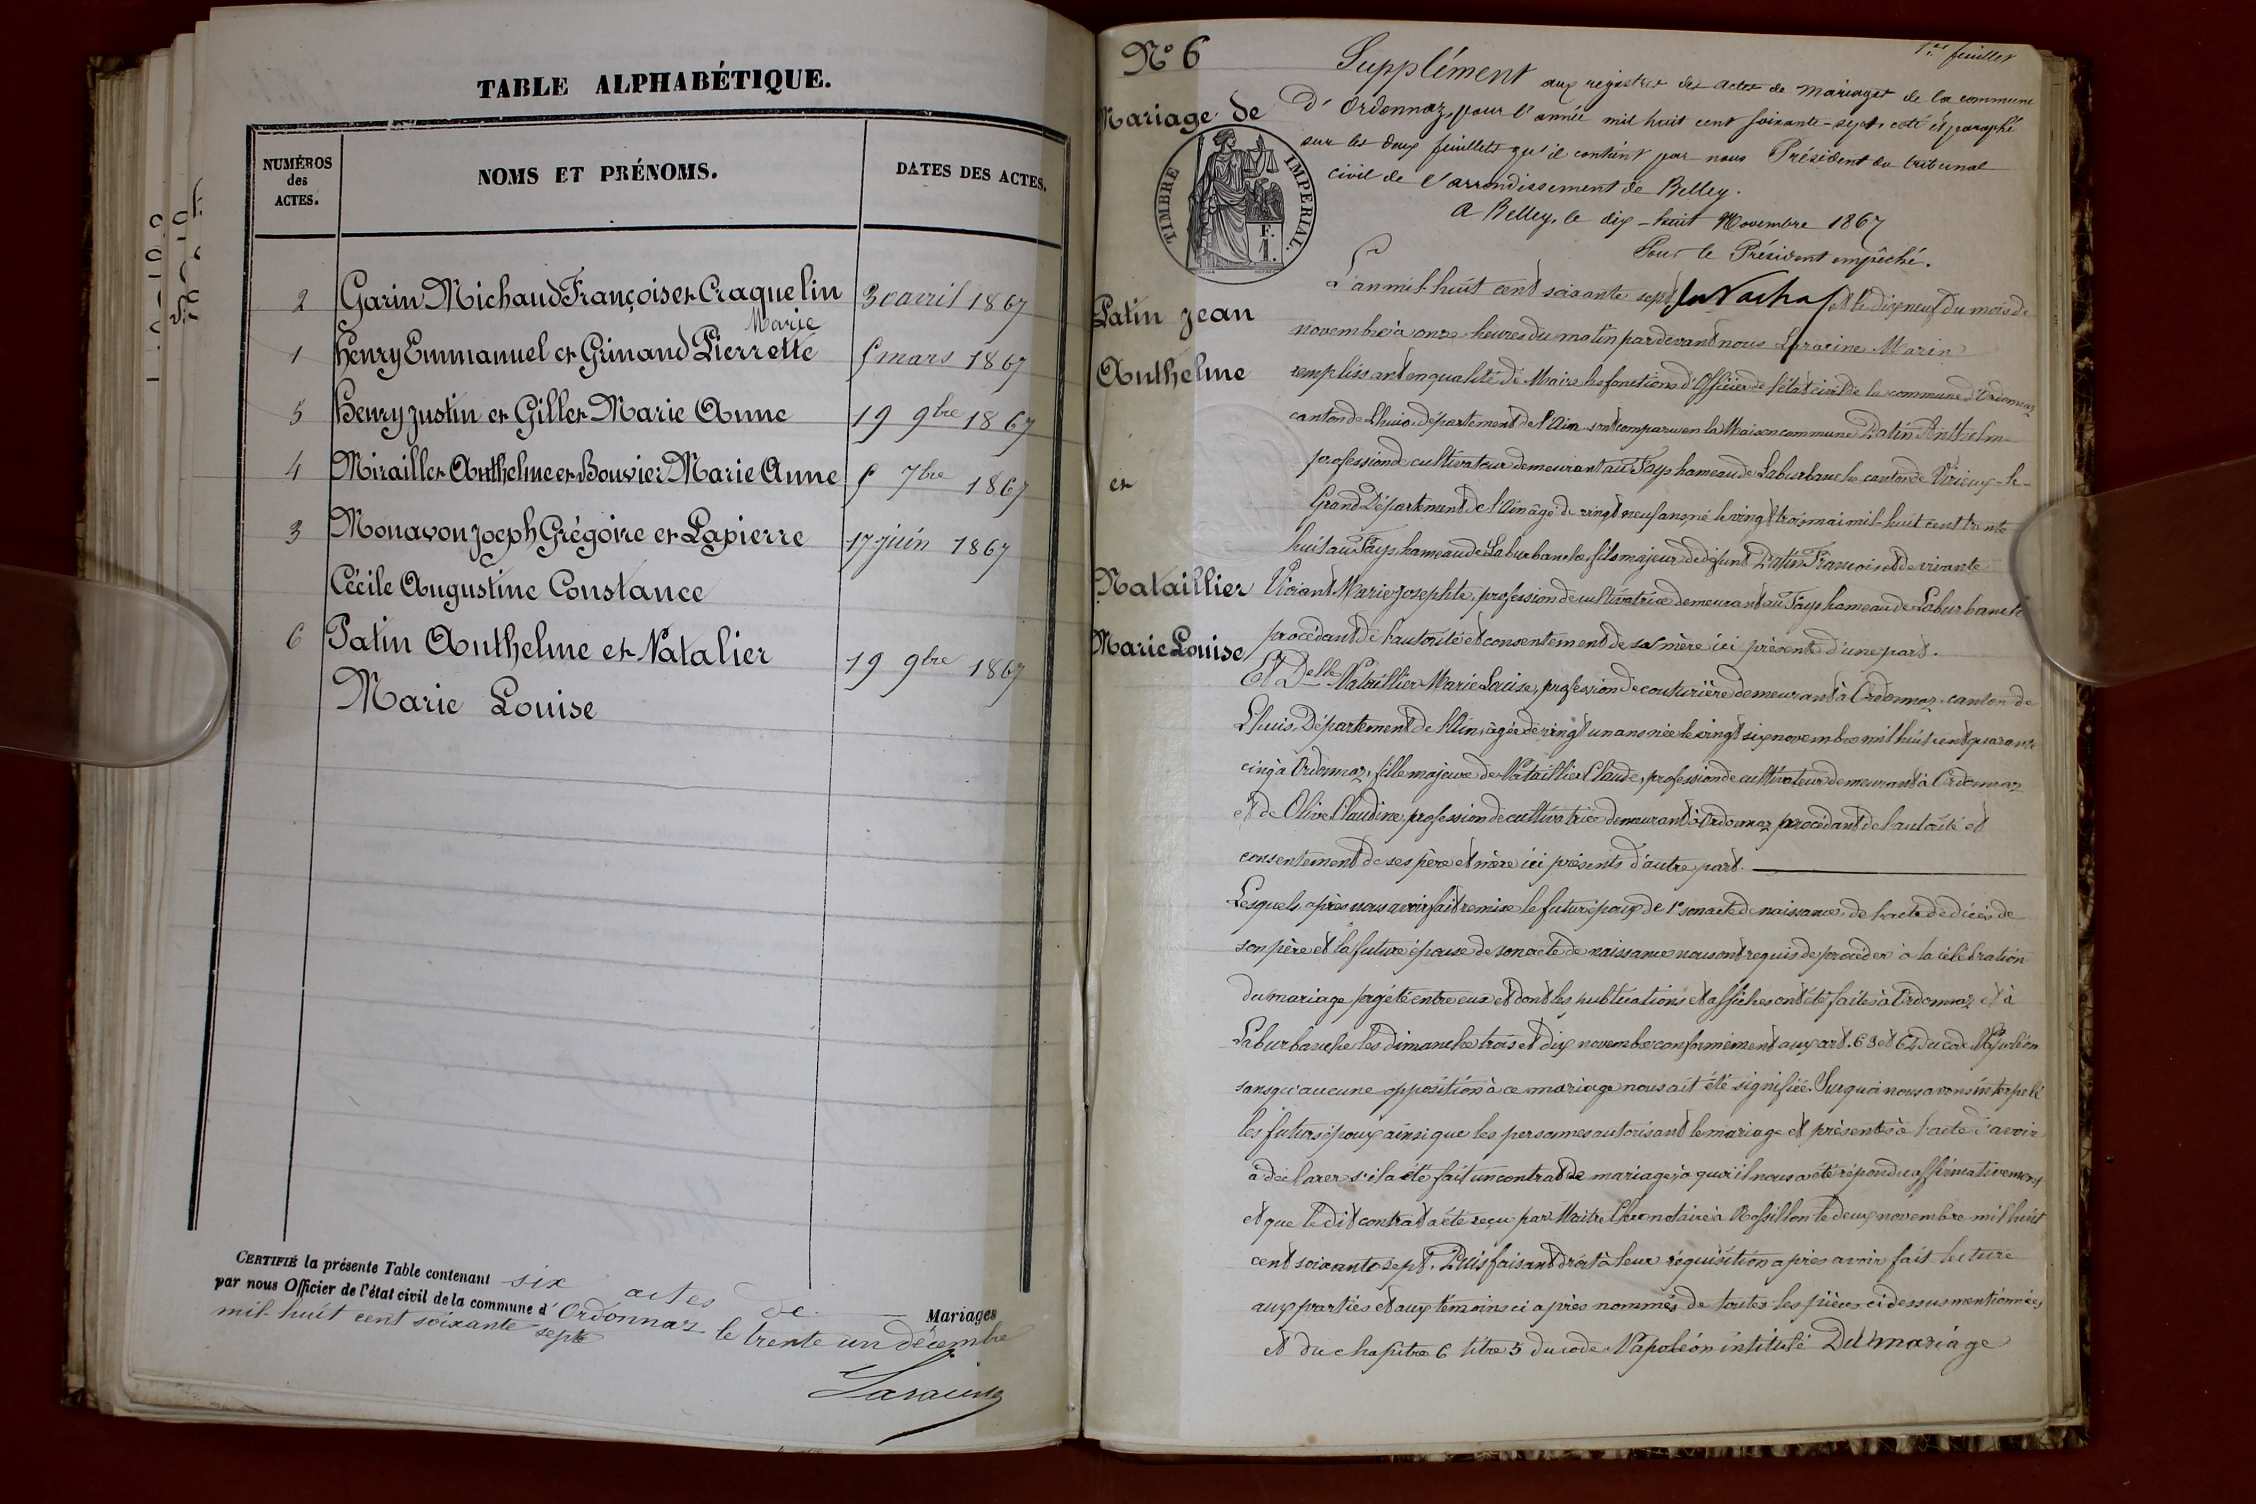 TABLE ALPHABÉTIQUE.
NUMÉROS des ACTES.
NOMS ET PRÉNOMS.
DATES DES ACTES.
2 Garin Michaud François et Craquelin Marie 30 avril 1867
1 Henry Emmanuel et Grinand Pierrette 5 mars 1867
5 Henry Justin et Gillet Marie Anne 19 9bre 1867
4 Miraillet Anthelme et Bouvier Marie Anne 5 7bre 1867
3 Monavon Joseph Grégoire et Lapierre 17 juin 1867
Cécile Augustine Constance
6 Patin Anthelme et Natalier 19 9bre 1867
Marie Louise
CERTIFIÉ la présente Table contenant six actes de Mariages
par nous Officier de l'état civil de la commune d'Ordonnaz le trente un décembre
mil huit cent soixante sept
Laracine
1er feuillet
N° 6
Mariage de
TIMBRE IMPERIAL.
F.
1.
Patin Jean
Anthelme
et
Nataillier
Marie Louise
Supplément aux registres des actes de Mariages de la commune
d'Ordonnaz, pour l'année mil huit cent soixante-sept, coté et paraphé
sur les deux feuillets qu'il contient par nous Président du tribunal
civil de l'arrondissement de Belley.
A Belley, le dix-huit Novembre 1867
Pour le Président empêché.
L'an mil huit cent soixante sept et le dix neuf du mois de
novembre à onze heures du matin par devant nous Laracine Marin
remplissant en qualité de Maire les fonctions d'Officier de l'état civil de la commune d'Ordonnaz
canton de Lhuis, département de l'Ain sont comparu en la Maison commune Patin Anthelme
profession de cultivateur demeurant au Fays hameau de Laburbanche canton de Virieux-le-
Grand Département de l'Ain âgé de vingt neuf ans né le vingt trois mai mil huit cent trente
huit au Fays hameau de Laburbanche, fils majeur de défunt Patin François et de vivante
Marie Josephte, profession de cultivatrice demeurant au Fays hameau de Laburbanche
procédant de l'autorité et consentement de sa mère ici présente d'une part.
Et Delle Nataillier Marie Louise, profession de couturière demeurant à Ordonnaz, canton de
Lhuis, Département de l'Ain, âgée de vingt un ans née le vingt six novembre mil huit cent quarante
cinq à Ordonnaz, fille majeure de Nataillier Claude, profession de cultivateur demeurant à Ordonnaz
et de Olive Claudine, profession de cultivatrice demeurant à Ordonnaz procédant de l'autorité et
consentement de ses père et mère ici présents d'autre part.
Lesquels après nous avoir fait remise le futur époux de 1° son acte de naissance, de l'acte de décès de
son père et la future épouse de son acte de naissance nous ont requis de procéder à la célébration
du mariage projeté entre eux et dont les publications et affiches ont été faites à Ordonnaz et à
Laburbanche les dimanche trois et dix novembre conformément aux art. 63 et 64 du code Napoléon
sans qu'aucune opposition à ce mariage nous ait été signifiée. Sur quoi nous avons interpelé
les futurs époux ainsi que les personnes autorisant le mariage et présentes à l'acte d'avoir
à déclarer s'il a été fait un contrat de mariage, à quoi il nous a été répondu affirmativement
et que le dit contrat a été reçu par Maître notaire à Rossillon le deux novembre mil huit
cent soixante sept. Puis faisant droit à leur réquisition après avoir fait lecture
aux parties et aux témoins ci après nommés de toutes les pièces ci dessus mentionnées
et du chapitre 6 titre 5 du code Napoléon intitulé Du mariage